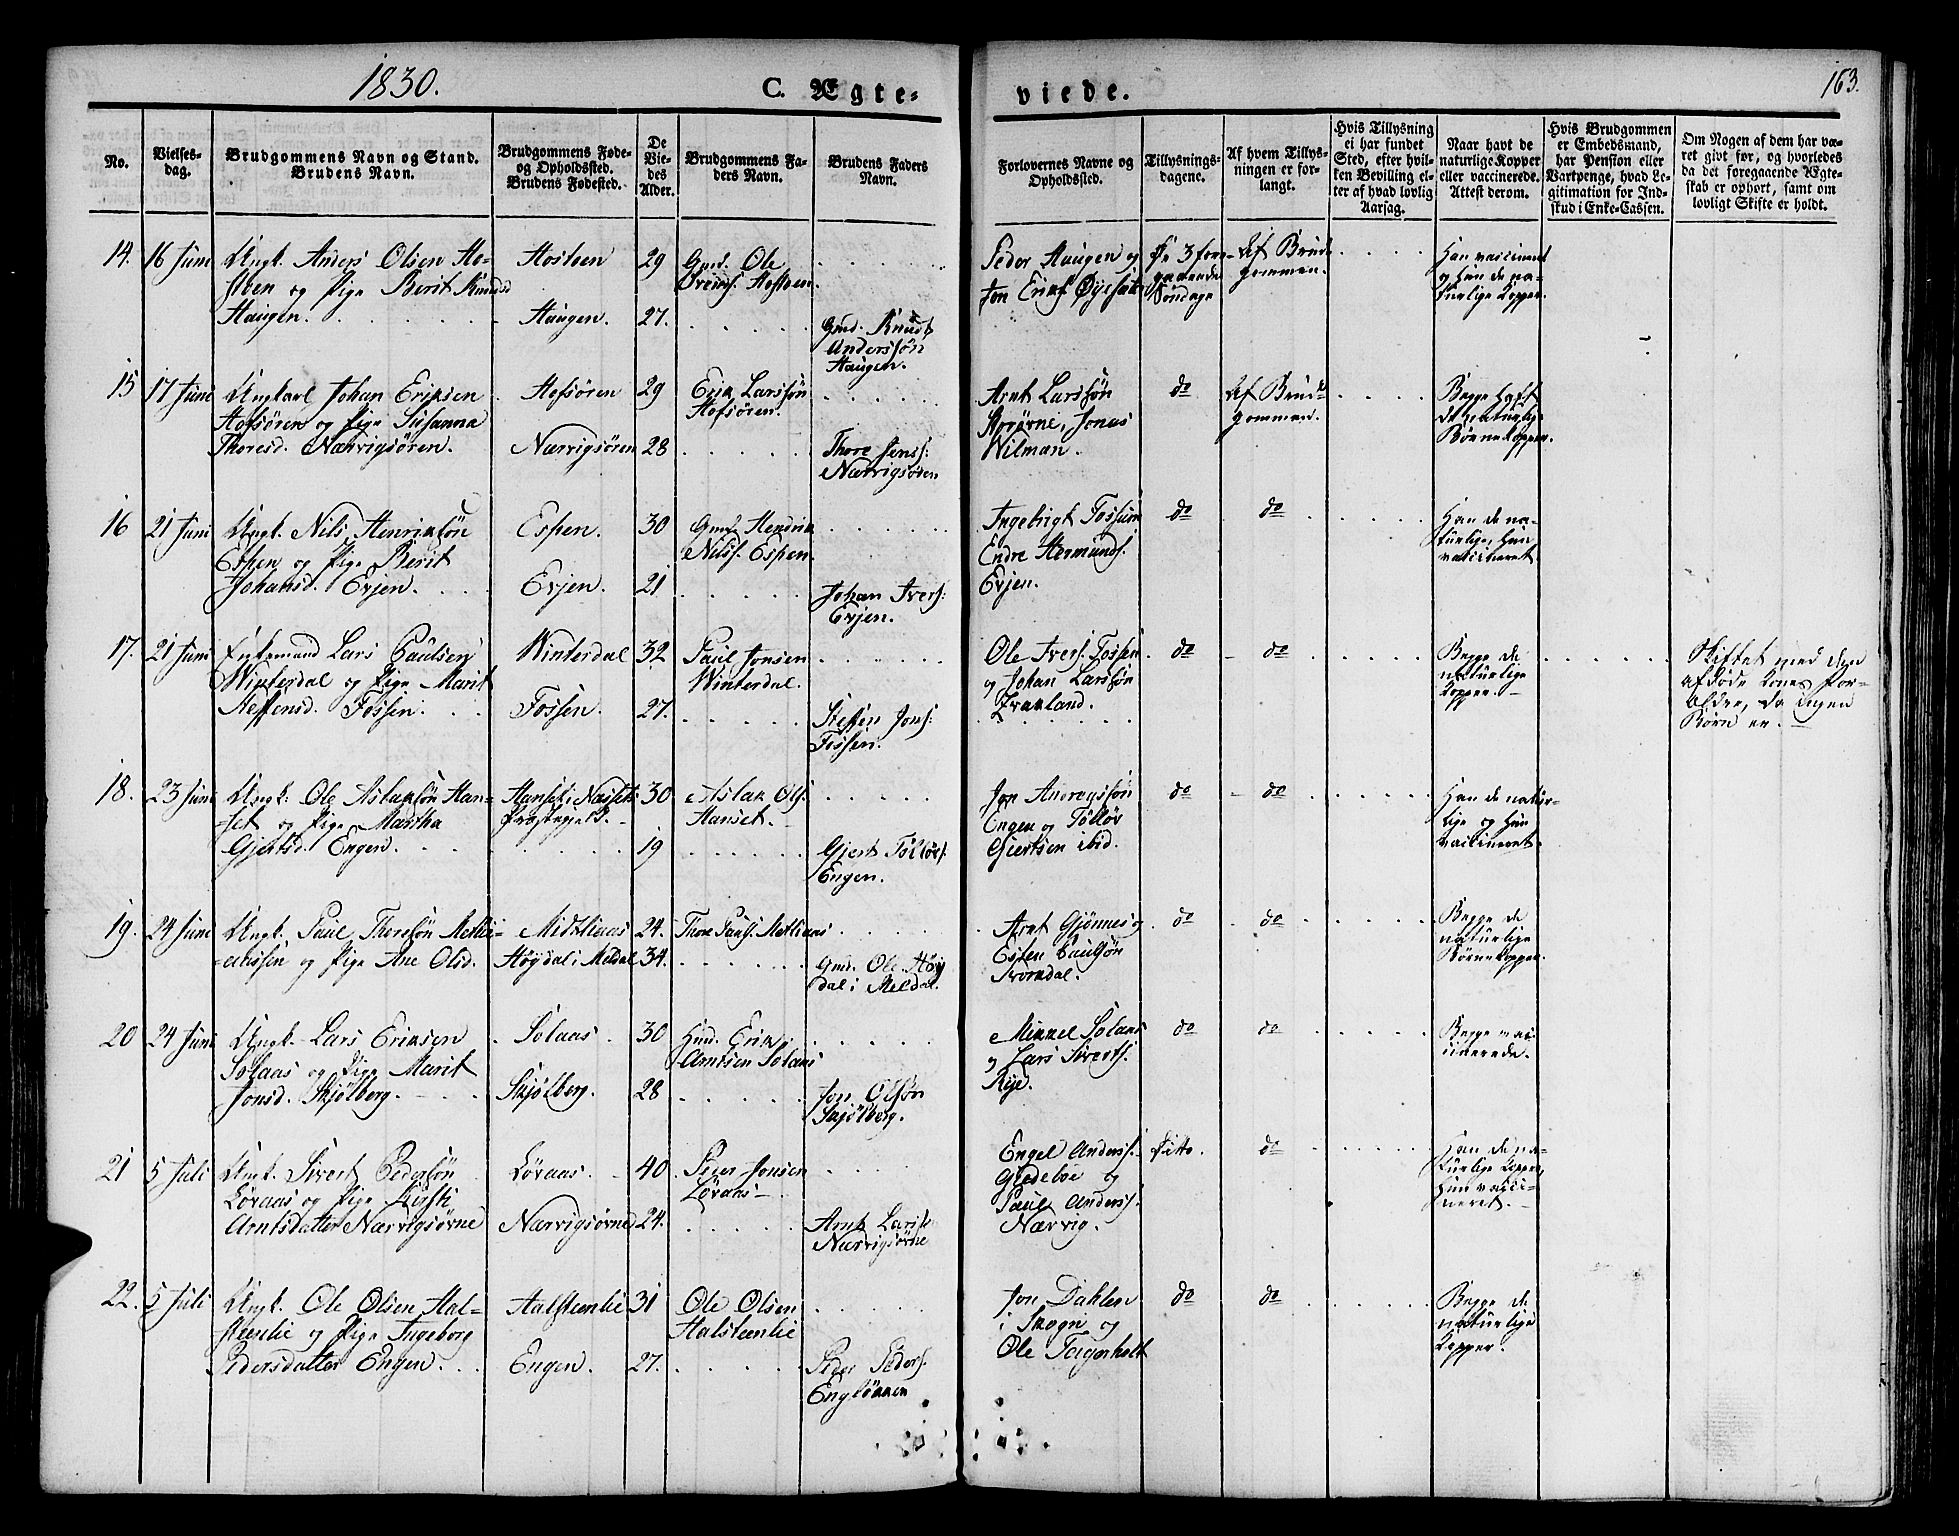 1830.
C. Ægte-
viede.
163.
No.
Vielses-
dag.
Brudgommens Navn og Stand.
Brudens Navn.
Brudgommens Føde-
og Opholdssted.
Brudens Fødested.
De
Vie-
des
Alder.
Brudgommens Fa-
ders Navn.
Brudens Faders
Navn.
Forlovernes Navne og
Opholdssted.
Tillysnings-
dagene.
Af hvem Tillys-
ningen er for-
langt.
Hvis Tillysning
ei har fundet
Sted, efter hvil-
ken Bevilling el-
ler af hvad lovlig
Aarsag.
Naar havt de
naturlige Kopper
eller vaccinerede.
Attest derom.
Hvis Brudgommen
er Embedsmand,
har Pension eller
Vartpenge, hvad Le-
gitimation for Ind-
skud i Enke-Cassen.
Om Nogen af dem har væ-
ret givt før, og hvorledes
da det foregaaende Ægte-
skab er ophørt, samt om
lovligt Skifte er holdt.
14. 16 Juni
Ungk. Anders Olsen Ho-
steen og Pige Berit Knudsd
Haugen.
Hosteen
Haugen.
29
27.
Gmd. Ole
Hosteen.
Gmd. Knud
Anderssøn
Haugen.
Peder Haugen og
Jon
De 3 fore-
gaaende
Søndage
Af Brud-
gommen.
Han vaccineret
og Hun de na-
turlige Kopper.
15 17 Juni
Ungkarl Johan Eriksen
Hofsøren og Pige Susanna
Thoresd. Nærvigsøren.
Hofsøren
Nærvigsøren
29
28
Erik Larssøn
Hofsøren.
Thore Jens:
Nærvigsøren
Arnt Larssøn
Jonas
Wilman.
do
Af Brud-
gommen.
Begge havt
de naturlige
Børnekopper.
16 21 Juni
Ungk. Nils Henriksøn
Espen og Pige Berit
Johansd. Evjen.
Espen.
Evjen.
30
21
Gmd. Hendrik
Nilss. Espen
Johan Ivers:
Evjen.
Ingebrigt Fossum
Endre Hermunds.
Evjen.
do
do
Han de na-
turlige, Hun
vaccineret.
17. 21 Juni
Enkemand Lars Paulsen
Winterdal og Pige Marit
Steffensd. Fossen.
Winterdal
Fossen.
32
27.
Paul Jonsen
Winterdal.
Steffen Jons:
Fossen.
Ole Ivers. Fossen
og Johan Larssøn
do
do
Begge de
naturlige
Kopper.
Skiftet med den
afdøde Kones For-
ældre, da ingen
Børn er.
18. 23 Juni
Ungk. Ole Aslaksøn Han-
set og Pige Martha
Gjertsd. Engen.
Hanset i Næsset
Præstegjeld.
30
19
Aslak Ols:
Hanset.
Gjert Tølløfs.
Engen.
Jon Andreassøn
Engen og Tølløv
Giertsen ibid.
do
do
Han de natur-
lige og Hun
vaccineret.
19. 24 Juni
Ungk. Paul Thoresøn
og Pige Ane Olsd.
Midtliaas
Høgdal i Meldal
24.
34.
Thore Pauls.
Gmd. Ole Høg
dal i Meldal.
Arnt Gjønnes og
Esten Paulsøn
do
do
Begge de
naturlige
Børnekopper.
20 24 Juni
Ungk. Lars Eriksen
Solaas og Pige Marit
Jonsd. Skjølberg.
Solaas.
Skjølberg.
30
28
Erik
Arntsen Solaas
Jon Olssøn
Skjølberg.
Mikkel Solaas
og Lars Siverts.
Rye.
do
do
Begge vac-
cinerede.
21 5 Juli
Ungk. Sivert Pedersøn
Løraas og Pige Kirsti
Arntsdatter Nærvigsørne
Løraas.
Nærvigsørne
40
24.
Peder Jonsen
Løraas
Arnt Larss.
Nærvigsørne
Engel Anders:
og
Paul Anderss.
Nærvig.
Ditto.
do
Han de na-
turlige Kopper,
Hun vacci-
neret.
22. 5 Juli
Ungk. Ole Olsen Aal-
steenlie og Pige Ingeborg
Pedersdatter Engen.
Aalsteenlie
Engen.
31
27.
Ole Olsen
Aalsteenlie
Peder Peders.
Jon Dahlen
i Skogn og
Ole
do
do
Begge de
naturlige
Kopper.